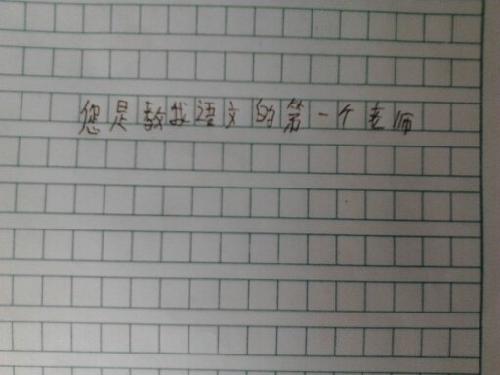 您是教我语文的第一个老师